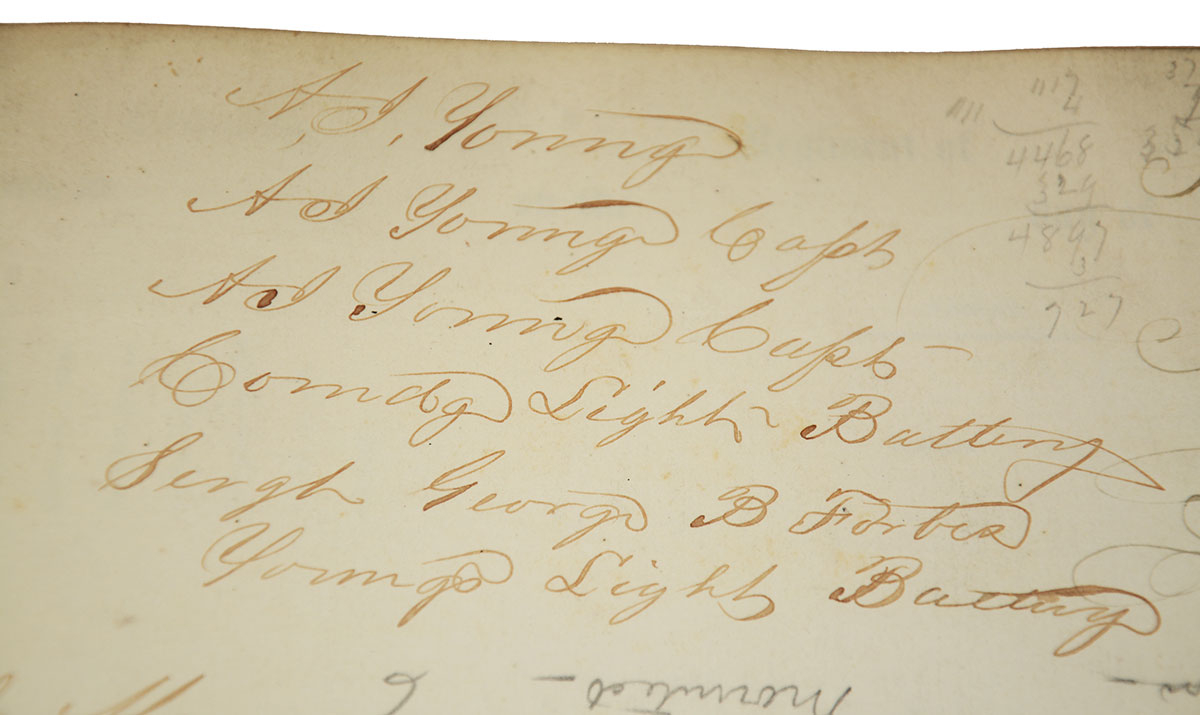 A, J, Young
A J Young Capt
A J Young Capt
Comdg Light Battery
Sergt George B Forbes
Youngs Light Battery
1117
4
1111
4468
329
4897
3
727
37
mounted